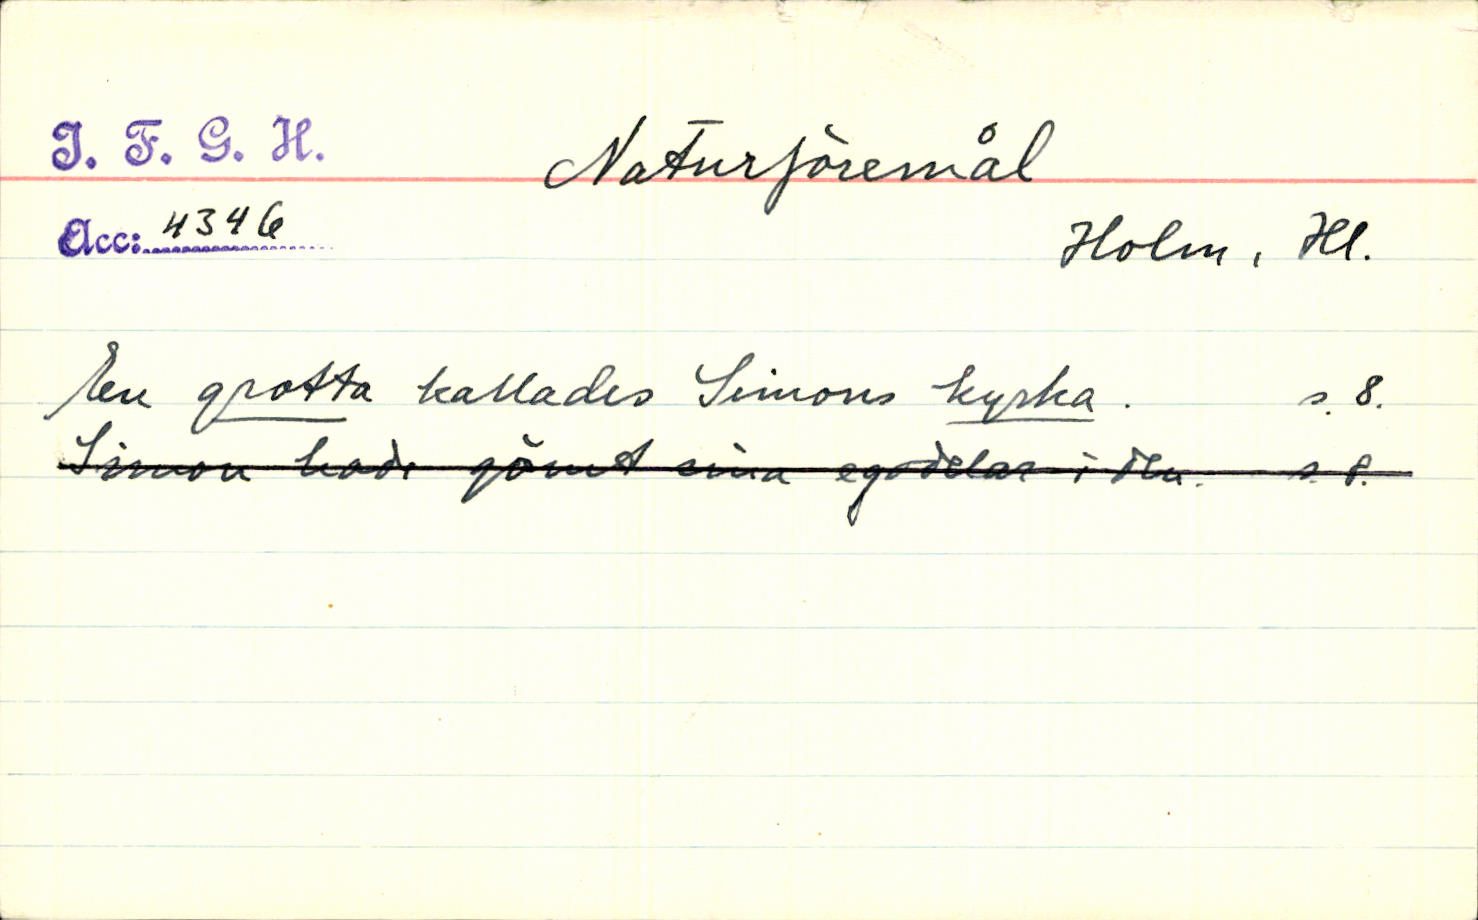 I. F. G. H.
Naturföremål
Acc: 4346
Holm, Hl.
En grotta kallades Simons kyrka. s. 8.
Simon hade gömt sina egodelar i den. s. 8.